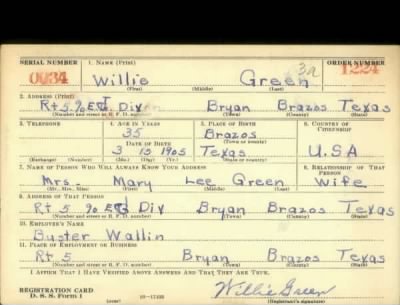 SERIAL NUMBER 1. NAME (Print) ORDER NUMBER
0034 Willie Green 3a 1224
(First) (Middle) (Last)
2. ADDRESS (Print)
Rt 5 % Div Bryan Brazos Texas
(Number and street or R. F. D. number) (Town) (County) (State)
3. TELEPHONE 4. AGE IN YEARS 5. PLACE OF BIRTH 6. COUNTRY OF CITIZENSHIP
35 Brazos
DATE OF BIRTH (Town or county)
3 15 1905 Texas U.S.A
(Exchange) (Number) (Mo.) (Day) (Yr.) (State or country)
7. NAME OF PERSON WHO WILL ALWAYS KNOW YOUR ADDRESS 8. RELATIONSHIP OF THAT PERSON
Mrs. Mary Lee Green Wife
(Mr., Mrs., Miss) (First) (Middle) (Last)
9. ADDRESS OF THAT PERSON
Rt 5 % Div Bryan Brazos Texas
(Number and street or R. F. D. number) (Town) (County) (State)
10. EMPLOYER'S NAME
Buster Wallin
11. PLACE OF EMPLOYMENT OR BUSINESS
Rt 5 Bryan Brazos Texas
(Number and street or R. F. D. number) (Town) (County) (State)
I AFFIRM THAT I HAVE VERIFIED ABOVE ANSWERS AND THAT THEY ARE TRUE.
REGISTRATION CARD
D. S. S. Form 1 (over) Willie Green
(Registrant's signature)